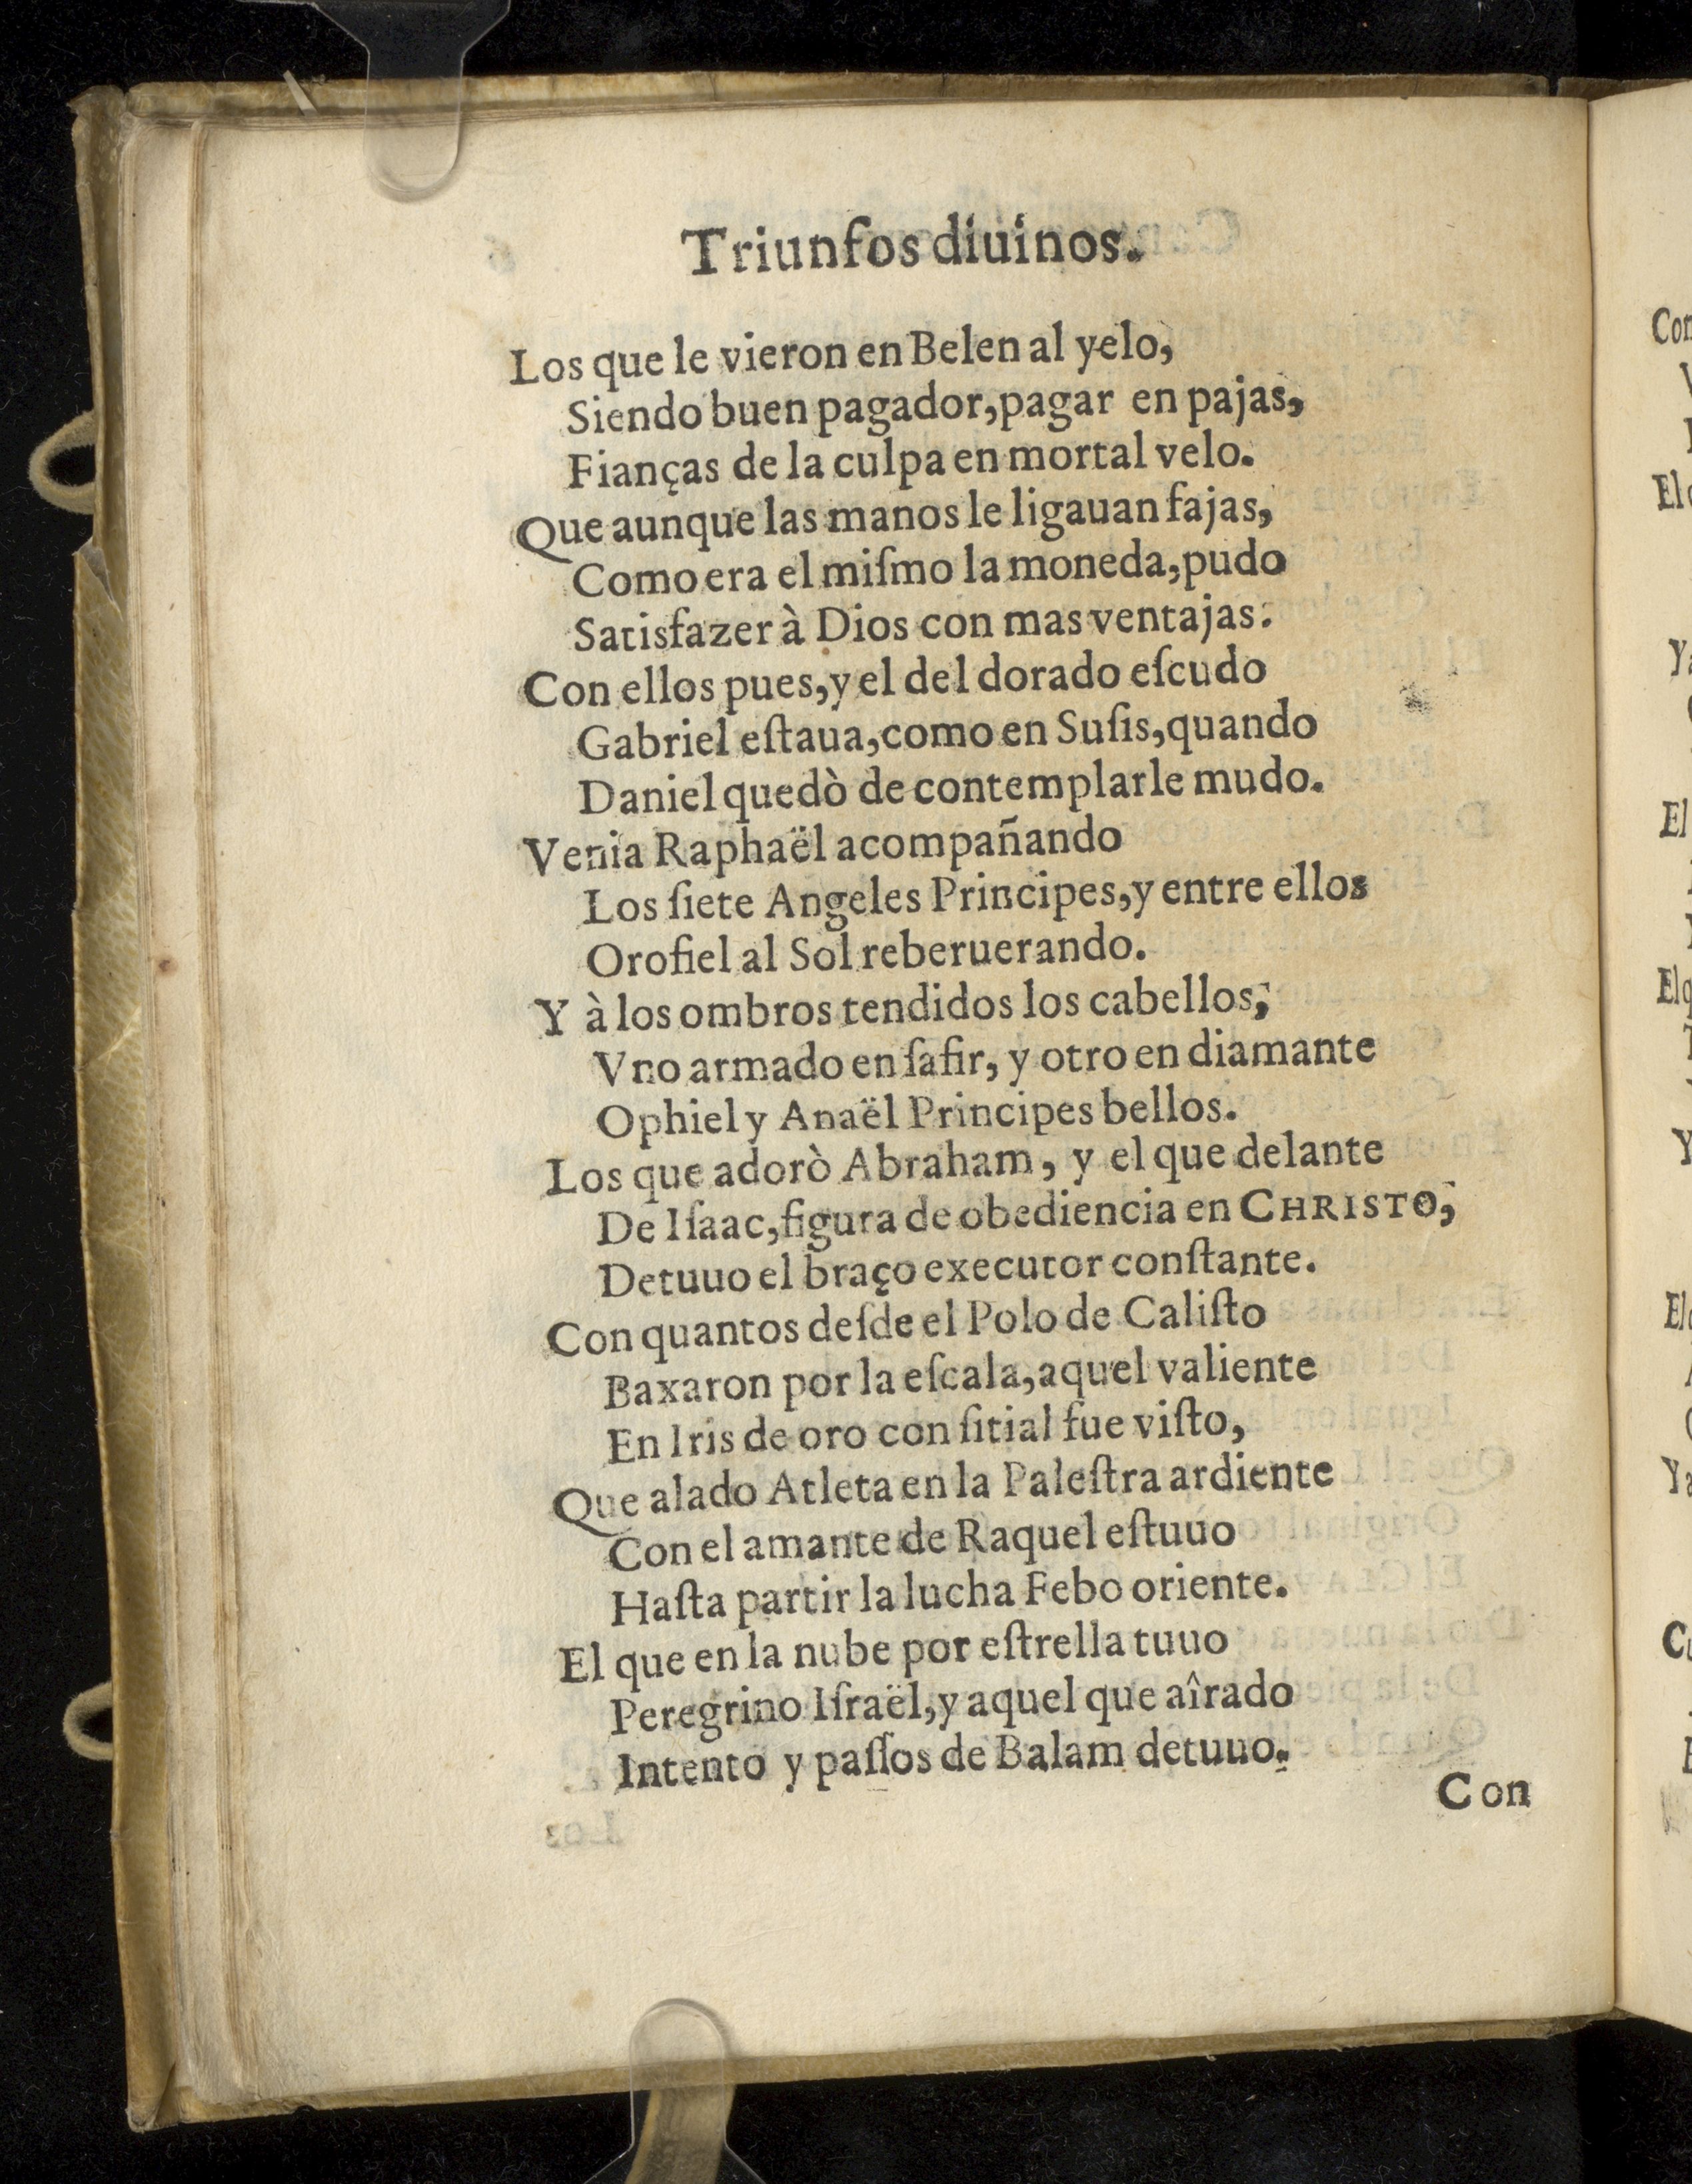 Triunfos diuinos.
Los que le vieron en Belen al yelo,
Siendo buen pagador, pagar en pajas,
Fianças de la culpa en mortal velo.
Que aunque las manos le ligauan fajas,
Como era el miſmo la moneda, pudo
Satisfazer à Dios con mas ventajas.
Con ellos pues, y el del dorado eſcudo
Gabriel eſtaua, como en Suſis, quando
Daniel quedò de contemplarle mudo.
Venia Raphaël acompañando
Los ſiete Angeles Principes, y entre ellos
Orofiel al Sol reberuerando.
Y à los ombros tendidos los cabellos,
Vno armado en ſafir, y otro en diamante
Ophiel y Anaël Principes bellos.
Los que adorò Abraham, y el que delante
De Iſaac, figura de obediencia en CHRISTO,
Detuuo el braço executor conſtante.
Con quantos deſde el Polo de Caliſto
Baxaron por la eſcala, aquel valiente
En Iris de oro con ſitial fue viſto,
Que alado Atleta en la Paleſtra ardiente
Con el amante de Raquel eſtuuo
Haſta partir la lucha Febo oriente.
El que en la nube por eſtrella tuuo
Peregrino Iſraël, y aquel que aîrado
Intento y paſſos de Balam detuuo.
Con